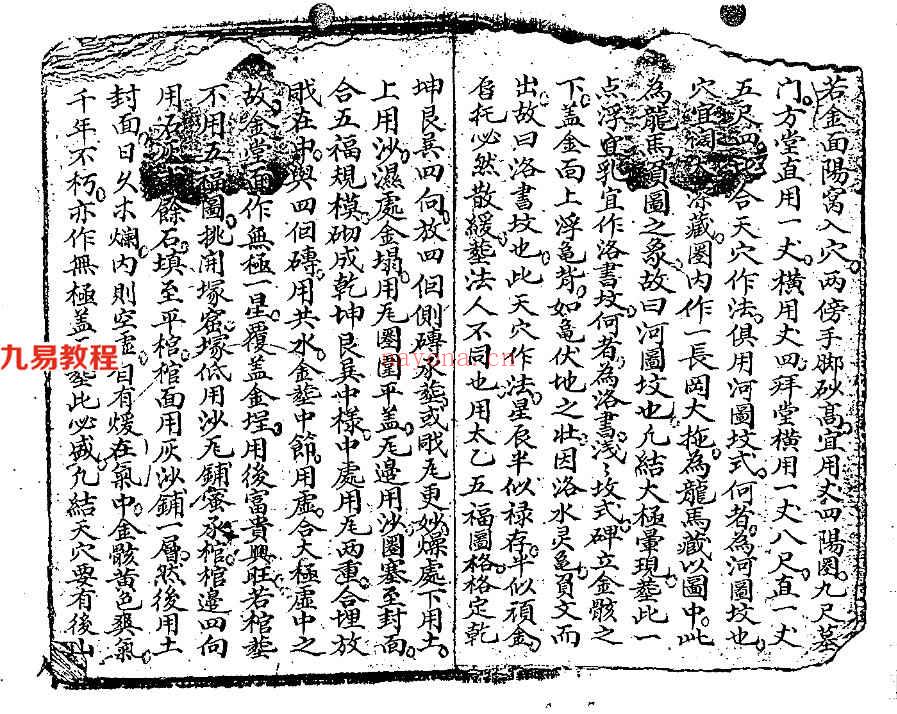 若金面陽窩入穴两傍手脚砂高宜用丈四陽圏九尺墓
门方堂直用一丈橫用丈四拜堂橫用一丈八尺直一丈
五尺四 合天穴作法俱用河圖坟式何者為河圖坟也
穴宜 深藏圏内作一長 大 為龍馬藏以圖中此
為龍馬負圖之象故曰河圖坟也凢結大極暈現塟此一
点浮宜乳宜作洛書坟何者為洛書浅〻坟式碑立金骸之
下盖金面上浮亀背如亀伏地之壮因洛水灵亀負文而
出故曰洛書坟也此天穴作法星辰半似禄存半似頑金
唇托必然散緩塟法人不同也用太乙五福圖格格定乾
坤艮巽四向放四佪側磚承塟或戝瓦更妙燥處下用土
上用沙濕處金塌用瓦圏圍平盖瓦邉用沙圏塞至封面
合五福規模砌成乾坤艮巽中樣中處用瓦两重合埋放
戝在中與四佪磚用共水金塟中節用虚合大極虚中之
故金堂面作無極一星覆盖金埕用後富貴興旺若棺塟
不用五福圖挑開塚窑塚低用沙瓦鋪蜜承棺棺邉四向
用石灰 餘石填至平棺棺面用灰沙鋪一層然後用土
封面日久木爛内則空虚自有煖在氣中金骸黄色爽氣
千年不朽亦作無極盖 塟此必威凢結天穴要有後山
九易教程
nayona.cn